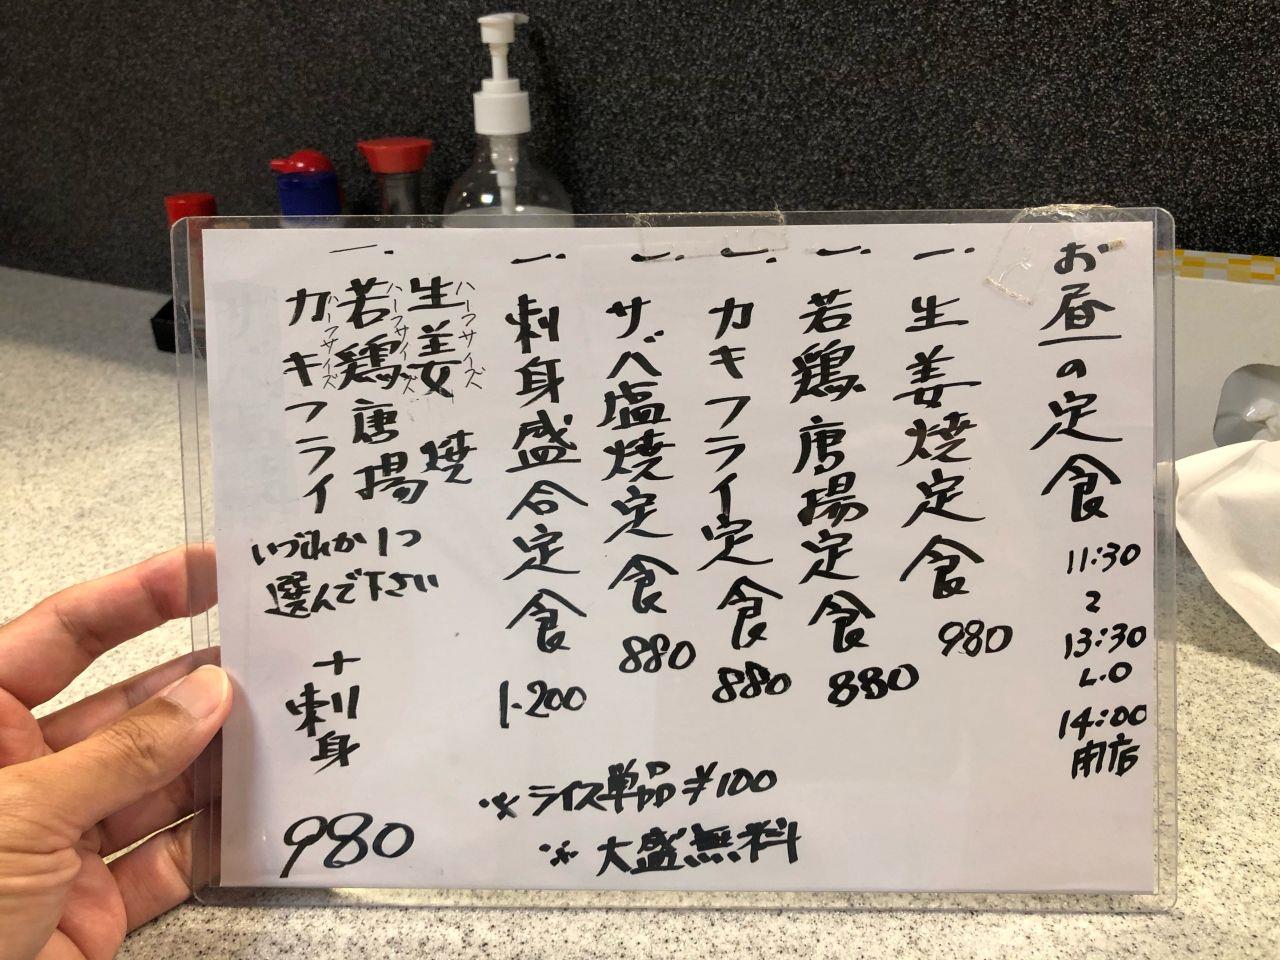 お昼の定食
11:30
〜
13:30
L.O
14:00
閉店
一. 生姜焼定食 980
一. 若鶏唐揚定食 880
一. カキフライ定食 880
一. サバ塩焼定食 880
一. 刺身盛合定食 1.200
一.
生姜焼 ハーフサイズ
若鶏唐揚 ハーフサイズ
カキフライ ハーフサイズ
いづれか1つ
選んで下さい
+
刺身
980
※ライス単品¥100
※大盛無料